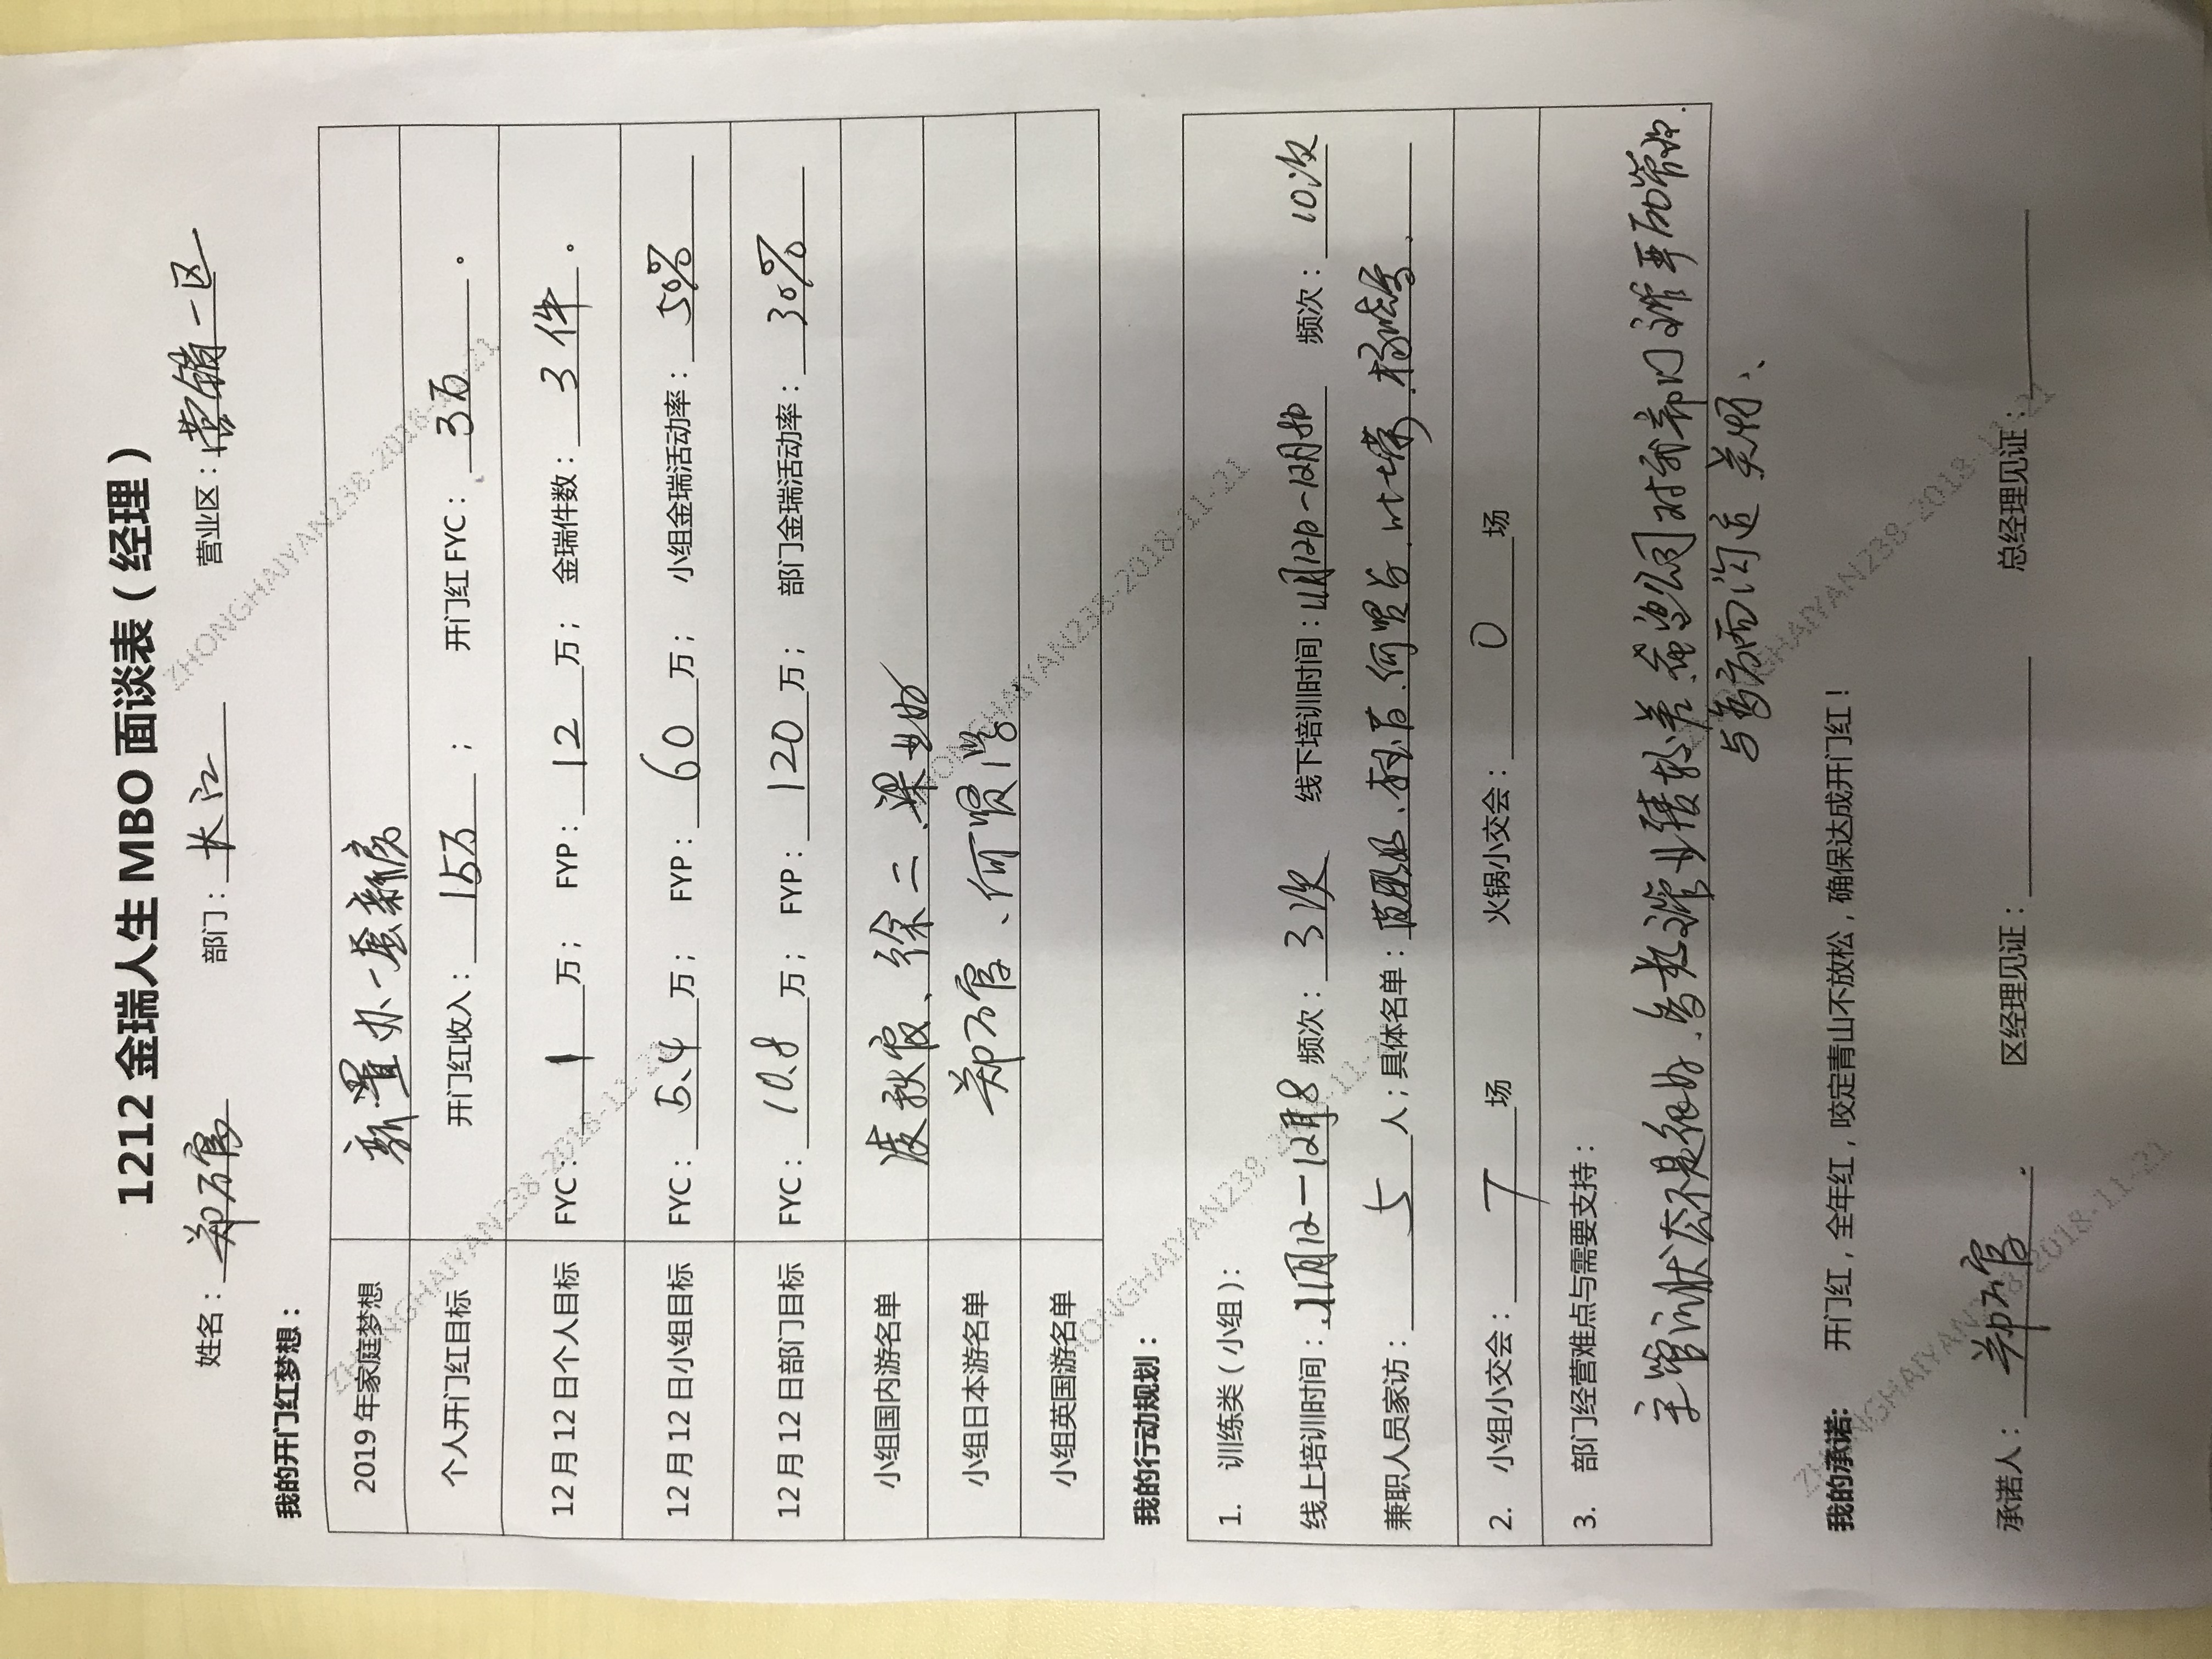 1212 金瑞人生 MBO 面谈表（经理）
姓名： 部门：长江 营业区：营销一区
我的开门红梦想：
2019 年家庭梦想 新置办一套新房
个人开门红目标 开门红收入：15万； 开门红 FYC：3万。
12 月 12 日个人目标 FYC：1万； FYP：12万； 金瑞件数：3件。
12 月 12 日小组目标 FYC：5.4万； FYP：60万； 小组金瑞活动率：50%
12 月 12 日部门目标 FYC：10.8万； FYP：120万； 部门金瑞活动率：30%
小组国内游名单 徐二、梁
小组日本游名单 郑、何
小组英国游名单
我的行动规划：
1. 训练类（小组）：
线上培训时间：11月12-12月8 频次：3次 线下培训时间：11月12日-12月8日 频次：10次
兼职人员家访：5人；具体名单：
2. 小组小交会：7场 火锅小交会：0场
3. 部门经营难点与需要支持：
主管状态不是很好、业绩较差、公司对部门
与 沟通、关
我的承诺: 开门红，全年红，咬定青山不放松，确保达成开门红！
承诺人： 区经理见证： 总经理见证：
ZHONGHAIYAN238-2018-11-21